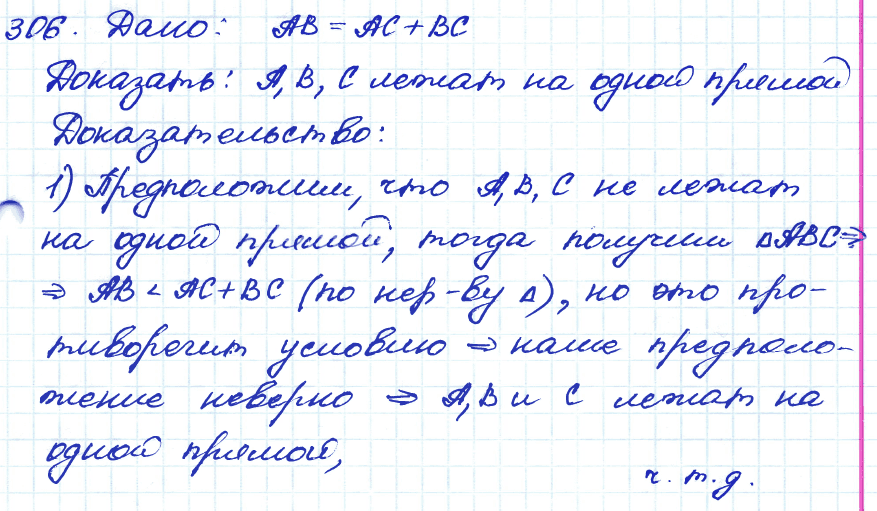 306. Дано: AB = AC + BC
Доказать: A, B, C лежат на одной прямой
Доказательство:
1) Предположим, что A, B, C не лежат
на одной прямой, тогда получим ΔABC ⇒
⇒ AB < AC + BC (по нер-ву Δ), но это про-
тиворечит условию ⇒ наше предполо-
жение неверно ⇒ A, B и C лежат на
одной прямой,
ч. т. д.